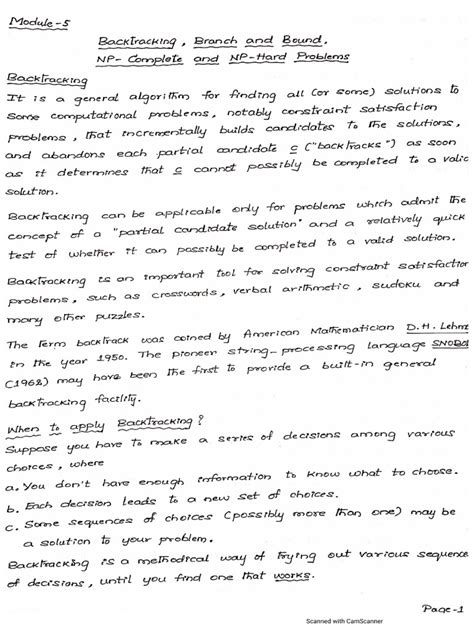 Module-5
Backtracking, Branch and Bound,
NP-Complete and NP-Hard Problems
Backtracking
It is a general algorithm for finding all (or some) solutions to
some computational problems, notably constraint satisfaction
problems, that incrementally builds candidates to the solutions,
and abandons each partial candidate c ("backtracks") as soon
as it determines that c cannot possibly be completed to a valid
solution.
Backtracking can be applicable only for problems which admit the
concept of a "partial candidate solution" and a relatively quick
test of whether it can possibly be completed to a valid solution.
Backtracking is an important tool for solving constraint satisfaction
problems, such as crosswords, verbal arithmetic, sudoku and
many other puzzles.
The term backtrack was coined by American Mathematician D.H. Lehm
in the year 1950. The pioneer string-processing language SNOBO
(1962) may have been the first to provide a built-in general
backtracking facility.
When to apply Backtracking?
Suppose you have to make a series of decisions among various
choices, where
a. You don't have enough information to know what to choose.
b. Each decision leads to a new set of choices.
c. Some sequences of choices (possibly more than one) may be
a solution to your problem.
Backtracking is a methodical way of trying out various sequence
of decisions, until you find one that works.
Page-1
Scanned with CamScanner